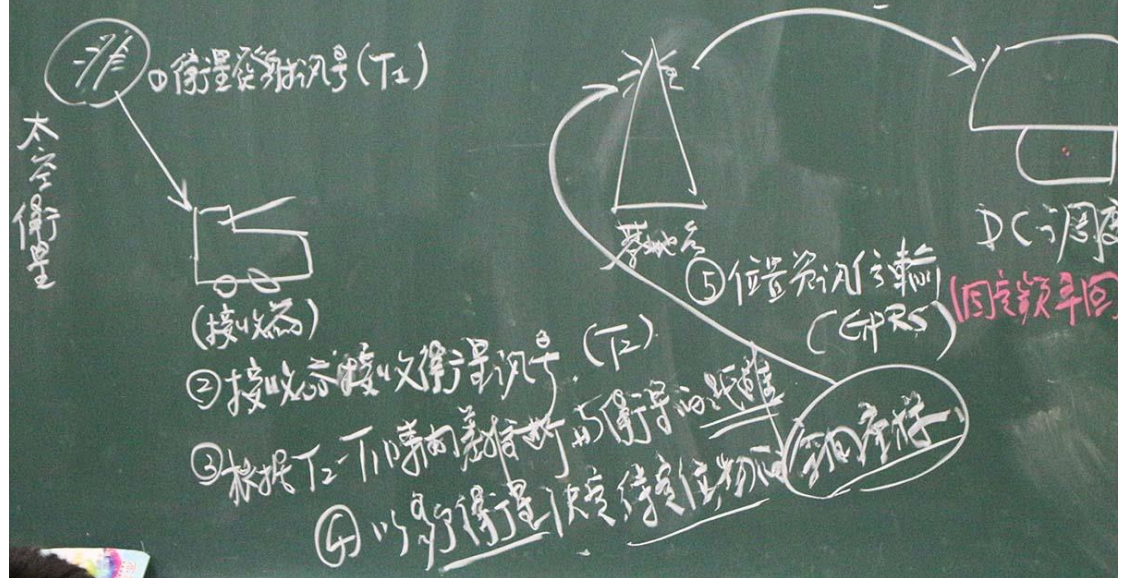 太空衛星
①衛星發射訊号(T1)
(接收器)
②接收器接收衛星訊号(T2)
③根据T2-T1時間差推断与衛星的距離
④以多個衛星決定待定位物的空間座标
基地台
⑤位置資訊传輸
(GPRS)
DC
調度
(固定頻率回